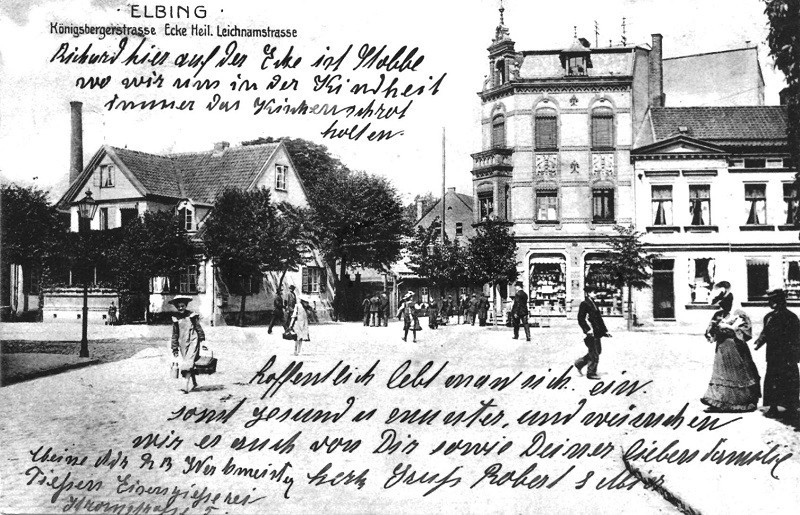 · ELBING ·
Königsbergerstrasse Ecke Heil. Leichnamstrasse
Richard hier auf der Ecke ist Stobbe
wo wir uns in der Kindheit
immer das Kirschenschrot
holten.
hoffentlich lebt man sich ein.
sonst gesund u munter, und wünschen
wir es auch von Dir sowie Deiner lieben Familie
herz Gruß Robert
Meine Adr Werkmeister
Tießen Eisengießerei